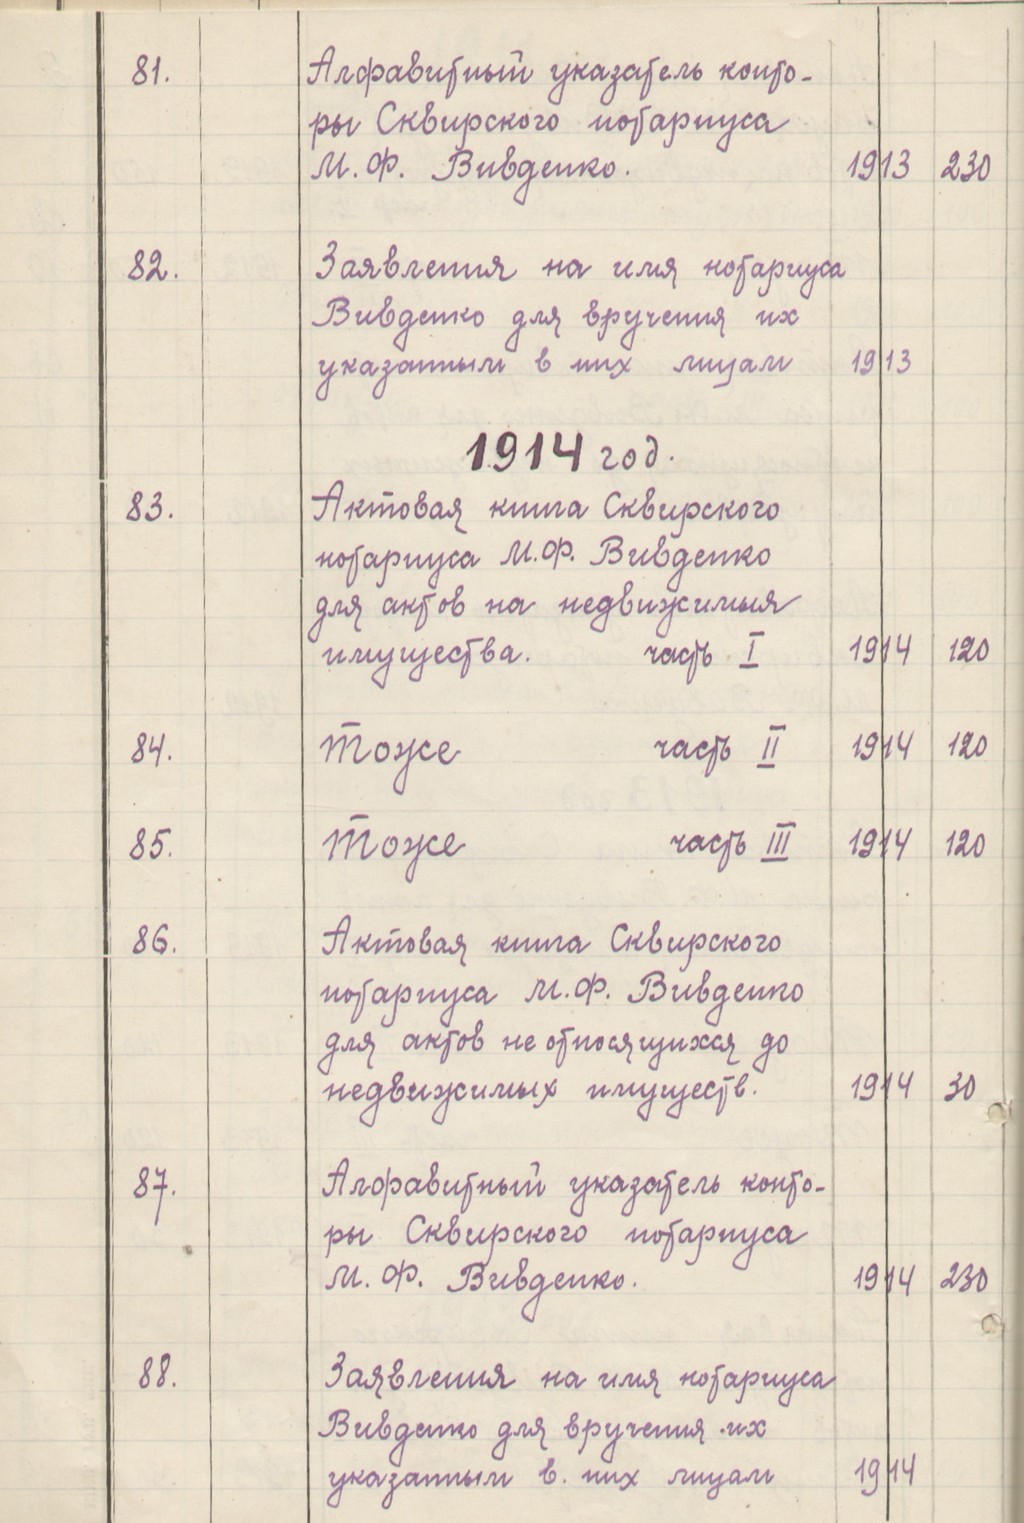 81. Алфавитный указатель конто-
ры Сквирского нотариуса
М. Ф. Вивденко. 1913 230
82. Заявления на имя нотариуса
Вивденко для вручения их
указанным в них лицам 1913
1914 год.
83. Актовая книга Сквирского
нотариуса М. Ф. Вивденко
для актов на недвижимыя
имущества. часть I 1914 120
84. Тоже часть II 1914 120
85. Тоже часть III 1914 120
86. Актовая книга Сквирского
нотариуса М. Ф. Вивденко
для актов не относящихся до
недвижимых имуществ. 1914 30
87. Алфавитный указатель конто-
ры Сквирского нотариуса
М. Ф. Вивденко. 1914 230
88. Заявления на имя нотариуса
Вивденко для вручения их
указанным в них лицам 1914